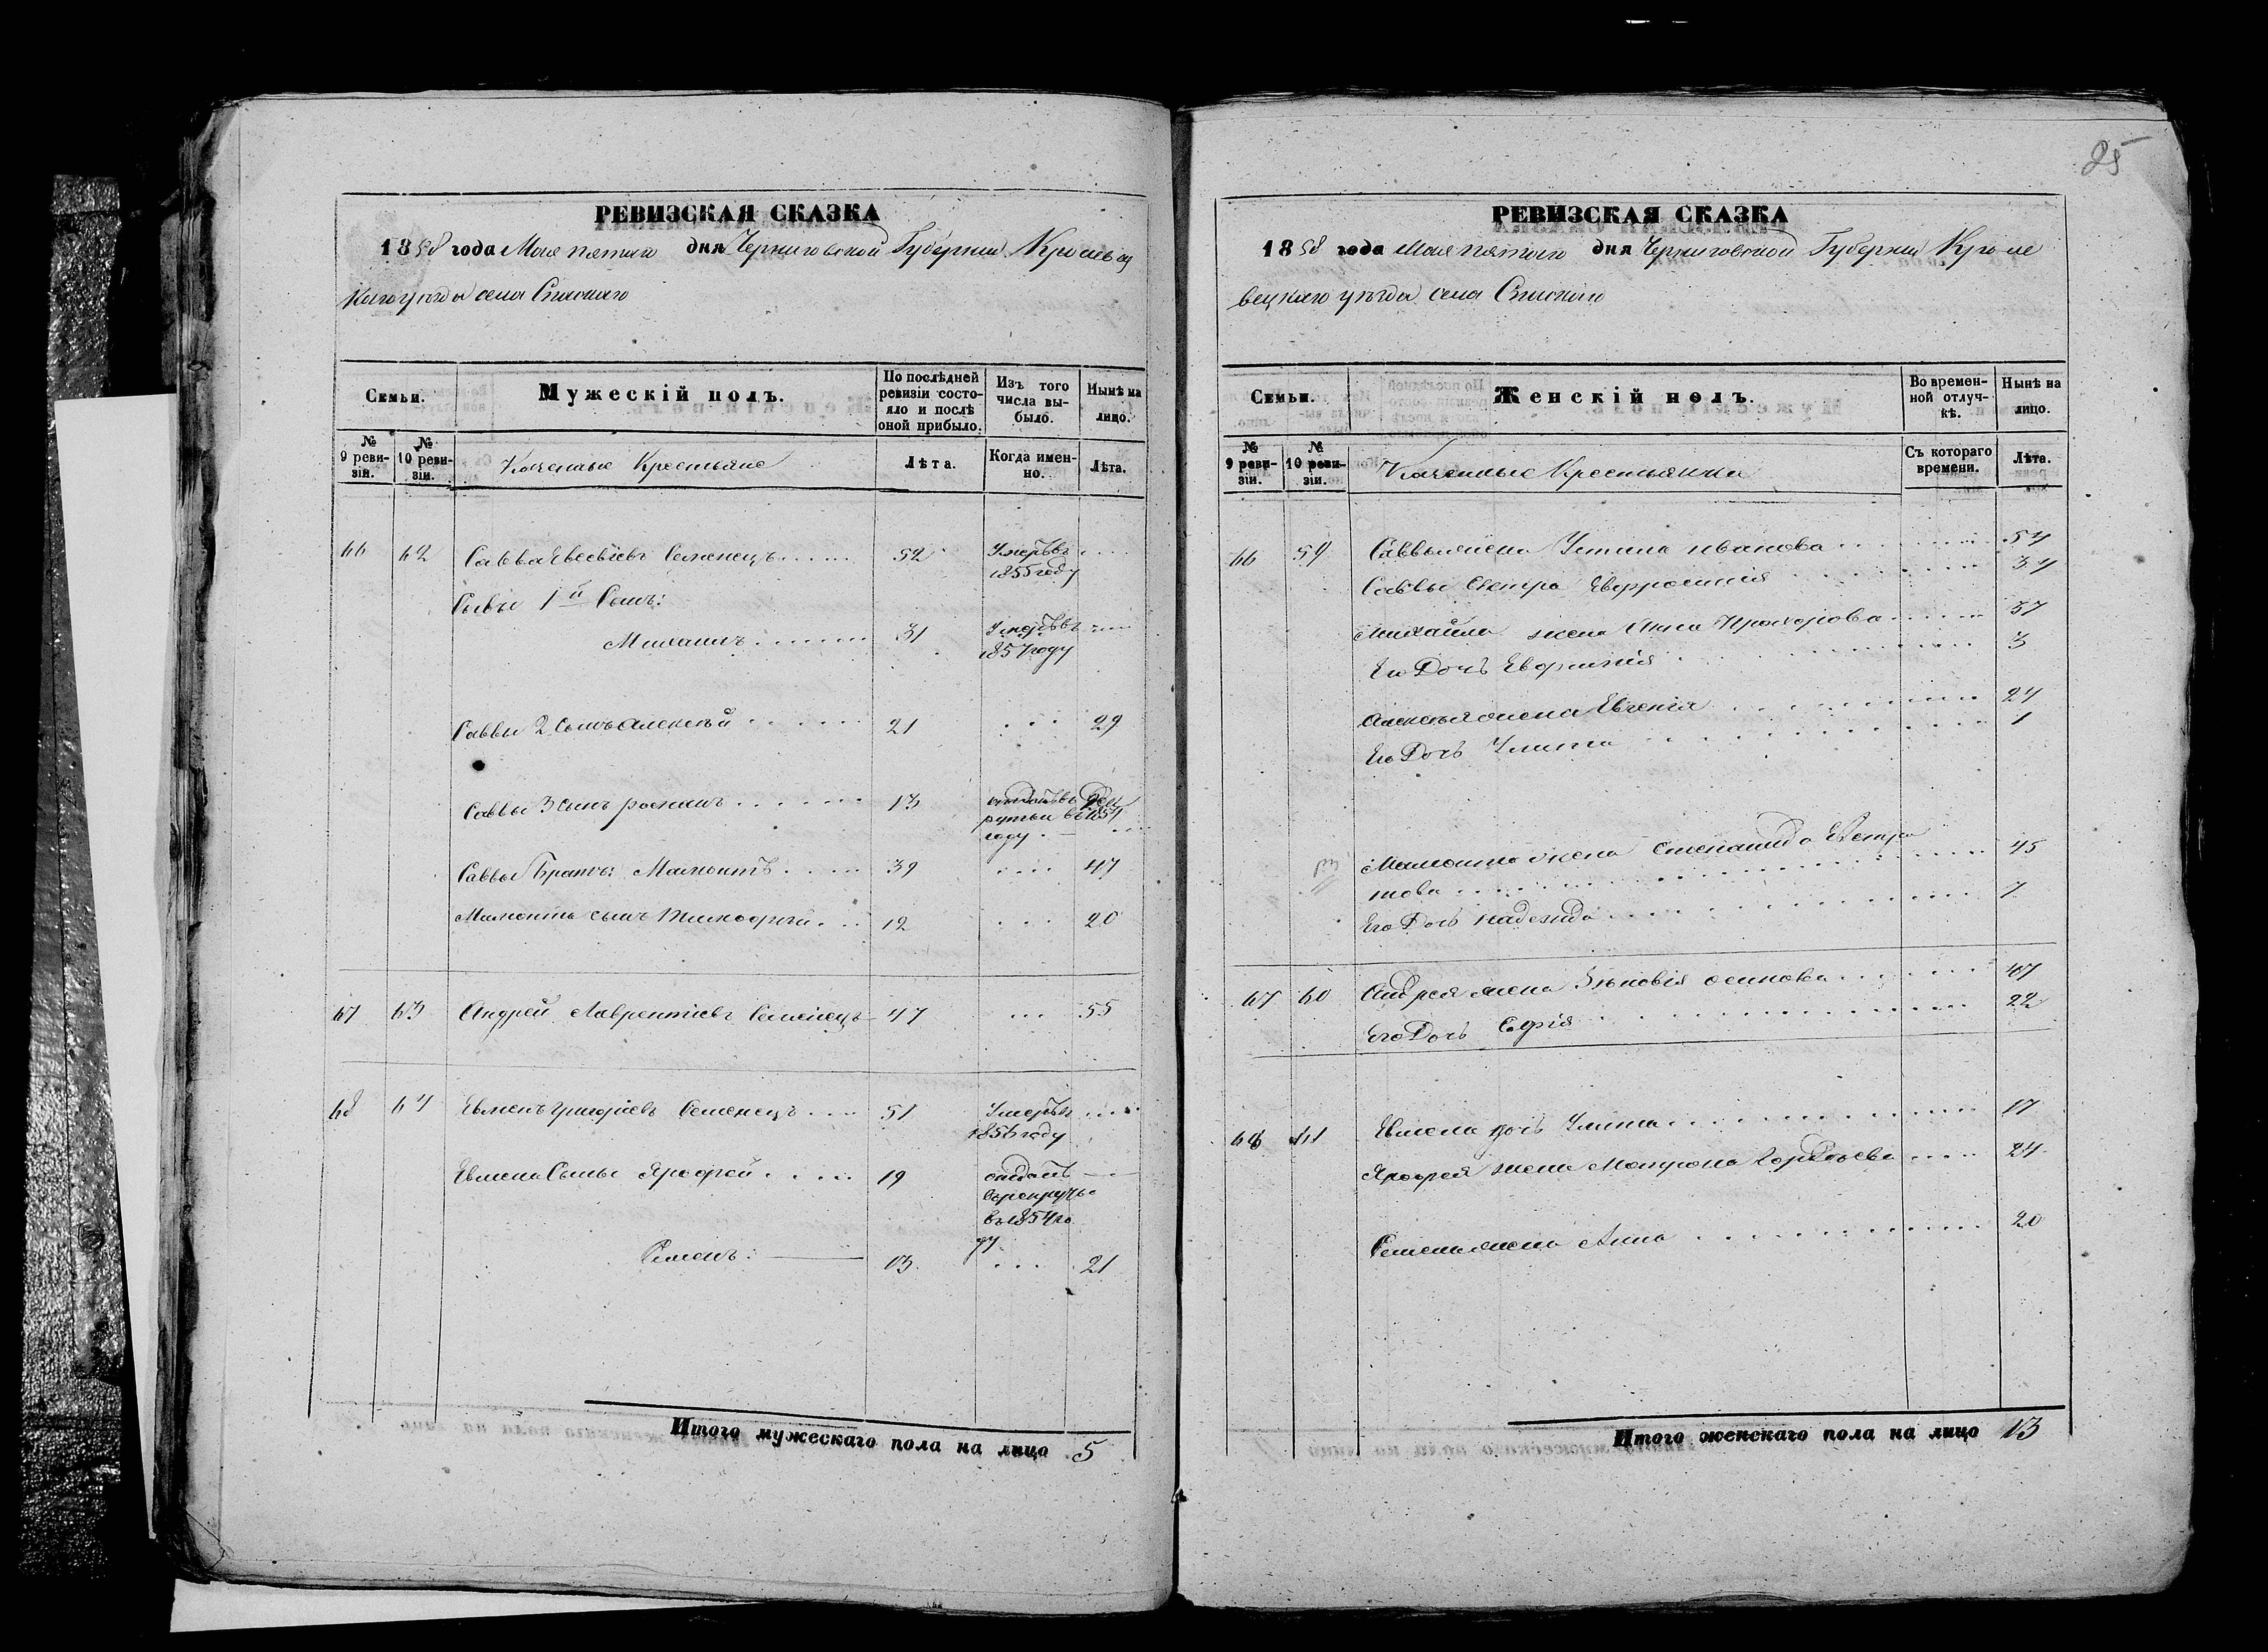 РЕВИЗСКАЯ СКАЗКА
1858 года Мая пятаго дня Черниговской Губернии Кролевец
каго уѣзда села Спаскаго
Семьи.
Мужескій полъ.
По послѣдней ревизіи состояло и послѣ оной прибыло.
Изъ того числа выбыло.
Нынѣ на лицо.
№ 9 ревизіи.
№ 10 ревизіи.
Казенные Крестьяне
Лѣта.
Когда именно.
Лѣта.
66 62 Савва Евсевіевъ Семенецъ 52 Умеръ въ
1855 году
Саввы 1й Сынъ:
Михаилъ 31 Умеръ въ
1857 году
Саввы 2 сынъ Алексѣй 21 29
Саввы 3 сынъ 13 отданъ въ рек
руты въ 1854
году
Саввы Братъ: Мамонтъ 39 47
Мамонта сынъ Тимофѣй 12 20
67 63 Андрей Лаврентіевъ Семенецъ 47 55
68 64 Евменъ Григоріевъ Семенецъ 51 Умеръ въ
1856 году
Евмена Сыны Ярофей 19 отданъ
въ рекруты
въ 1854 го
ду
Семенъ: 13 21
Итого мужескаго пола на лицо 5
25
РЕВИЗСКАЯ СКАЗКА
1858 года Мая пятаго дня Черниговской Губерніи Кроле
вецкаго уѣзда села Спаскаго
Семьи.
Женскій полъ.
Во временной отлучкѣ.
Нынѣ на лицо.
№ 9 ревизіи.
№ 10 ревизіи.
Казенные Крестьянки
Съ котораго времени.
Лѣта.
66 59 Саввы жена Устина иванова 54
Саввы сестра Евфросинія 34
Михайла жена Анна Прохорова 37
Его Дочь 3
Алексѣя жена Евгенія 24
Его Дочь Улита 1
Мамонта жена Степанида Евстра
това 45
Его Дочь надежда 7
67 60 Андрея жена Зѣновія осипова 47
Его Дочь Софія 22
68 61 Евмена дочь Улита 17
Ярофея жена Матрона Гордѣева 24
Семена жена Анна 20
Итого женскаго пола на лицо 13